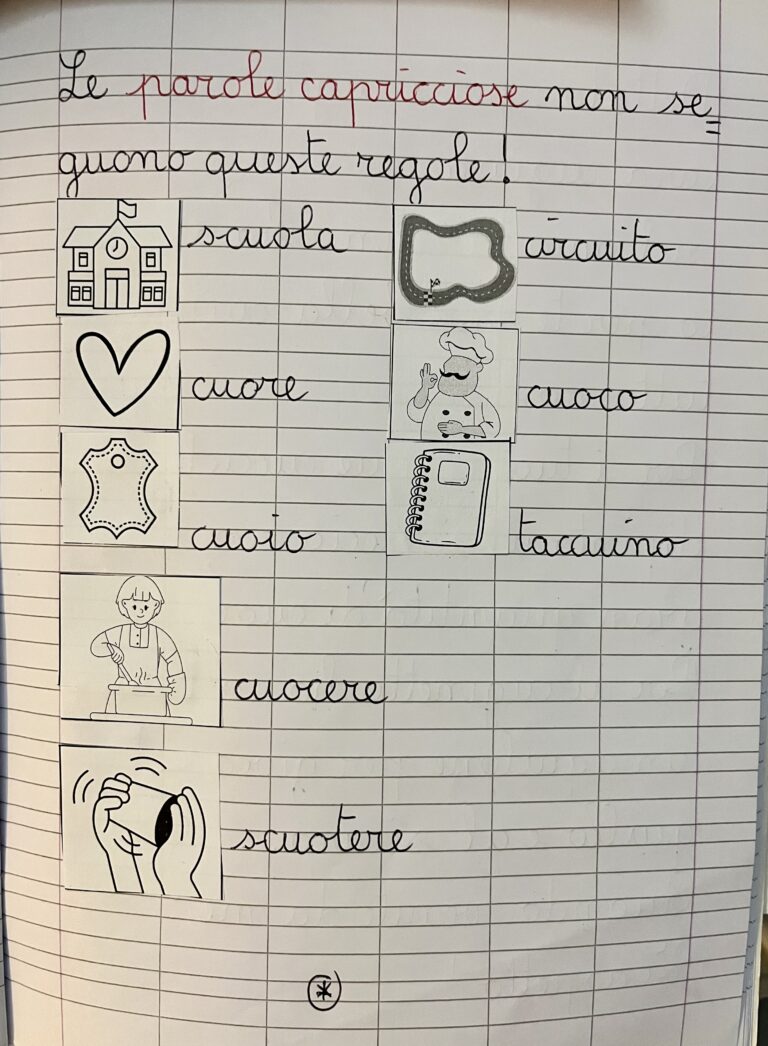 Le parole capricciose non se=
guono queste regole!
scuola circuito
cuore cuoco
cuoio taccuino
cuocere
scuotere
*